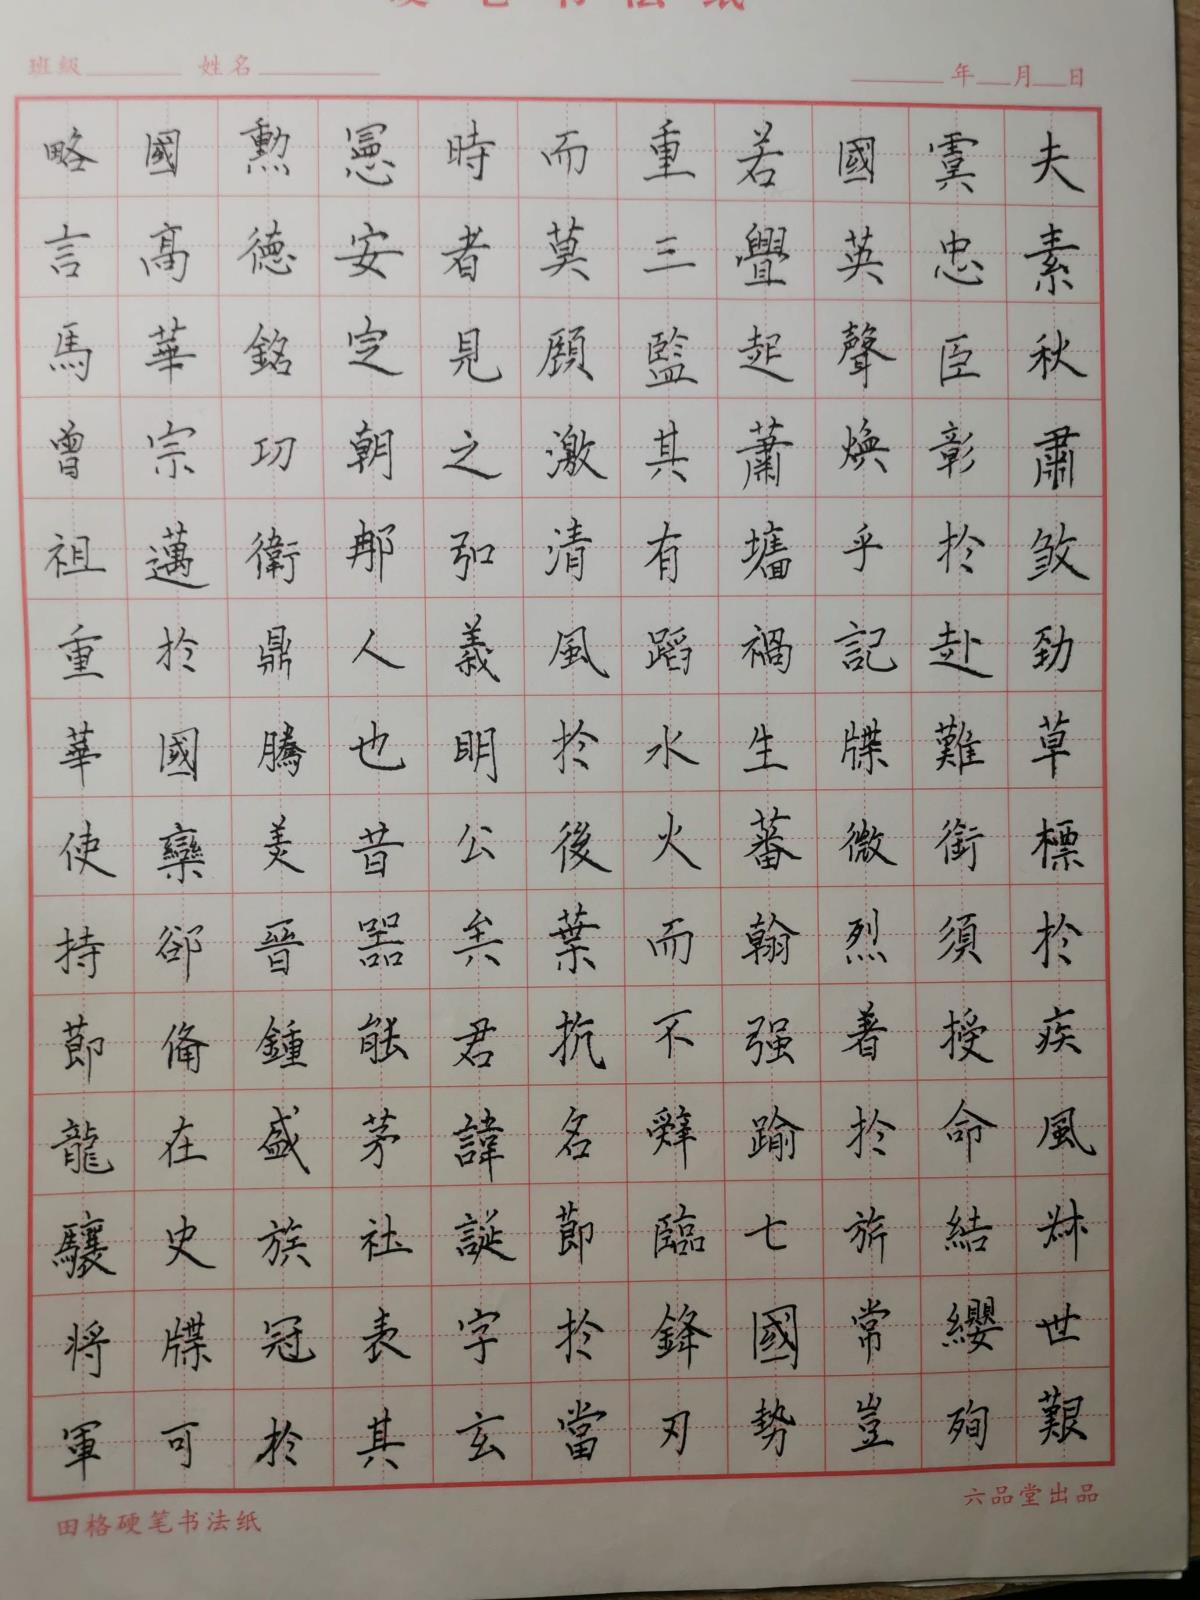 硬笔书法纸
班級 姓名 年 月 日
夫素秋肅煞勁草標於疾風叔世艱
虞忠臣彰於赴難銜須授命結纓殉
國英聲煥乎記牒微烈著於旂常豈
若釁起蕭墻禍生蕃翰强踰七國勢
重三監其有蹈水火而不辤臨鋒刃
而莫顧激清風於後葉抗名節於當
時者見之弘義明公矣君諱誕字玄
憲安定朝那人也昔器能茅社表其
勲德銘功衛鼎騰美晉鍾盛族冠於
國高華宗邁於國欒郤備在史牒可
略言馬曾祖重華使持節龍驤將軍
田格硬笔书法纸
六品堂出品